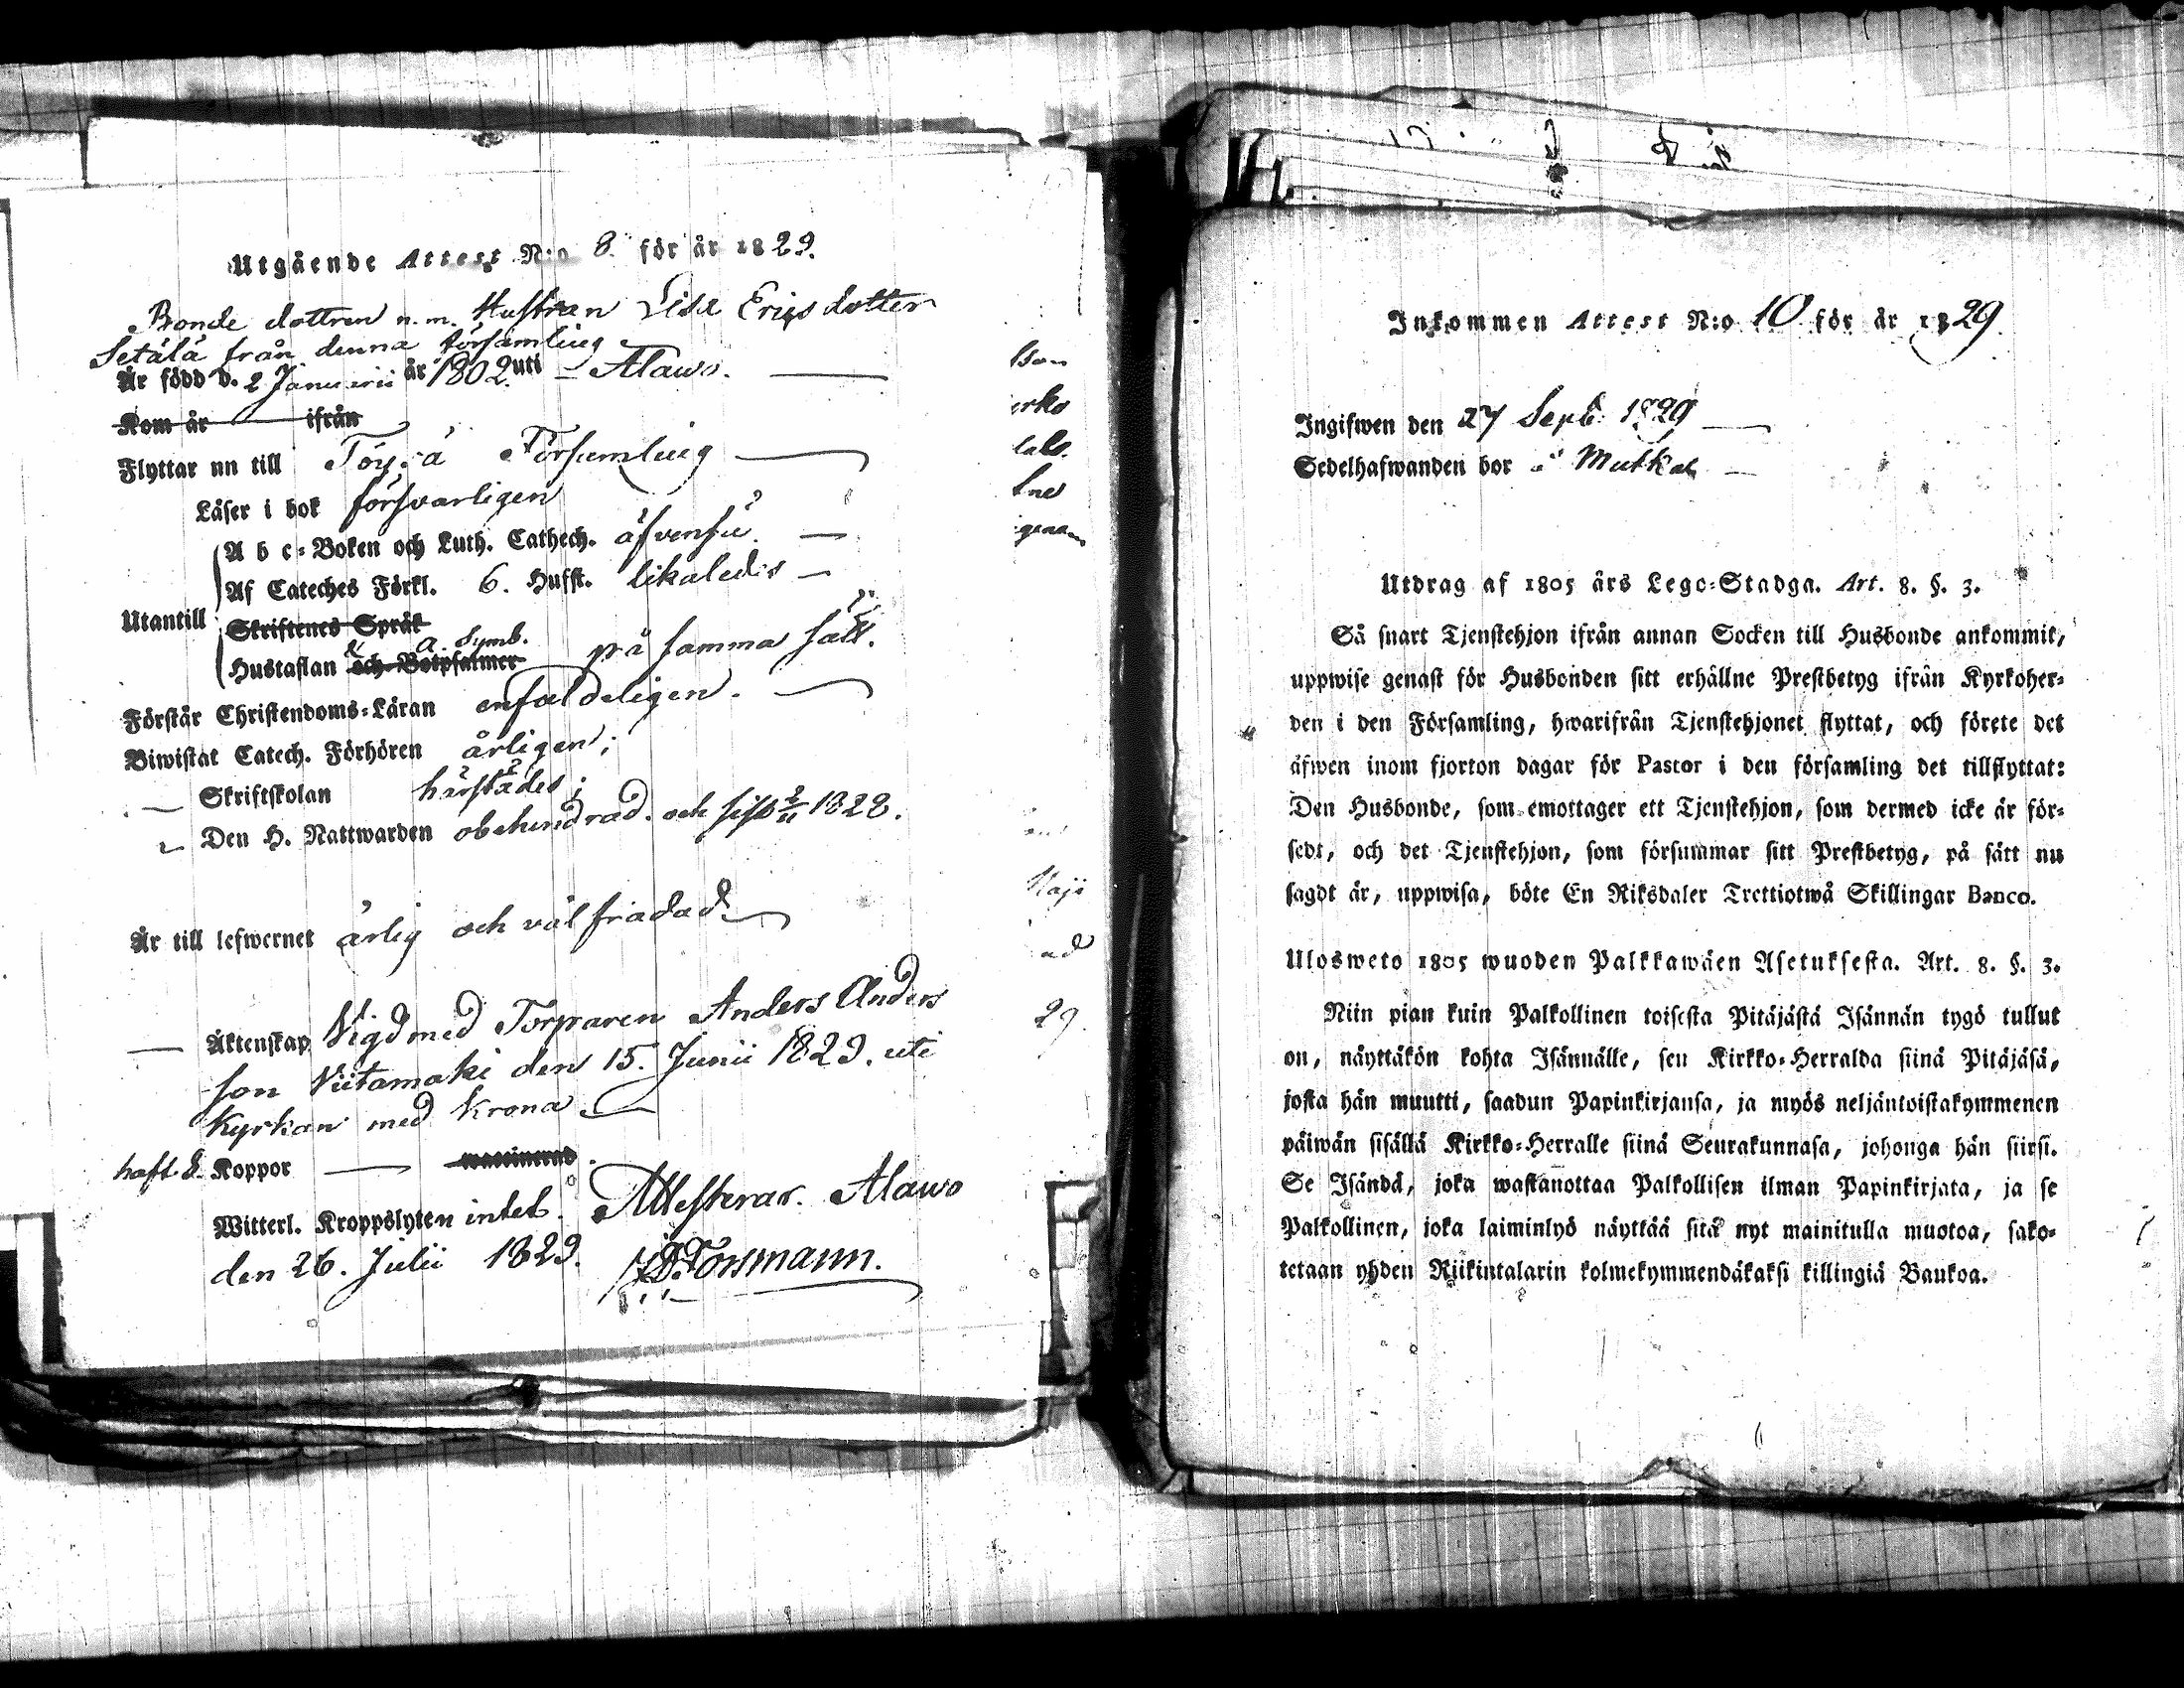 Utgående Attest N:o 8. för år 1829.
Bonde dottren n. m. Hustran Lisa Ericsdotter
Setälä från denna församling
Är född d. 2 Januarii år 1802 uti Alawo.
Kom år ifrån
Flyttar nu till Töysä Församling
Läser i bok försvarligen
A b c-Boken och Luth. Cathech. äfvenså.
Af Cateches Förkl. 6. Hufst. likaledes
Utantill
Skriftenes Språk
a. Symb.
Hustaflan och Botpsalmer på samma sätt.
Förstår Christendoms-Läran enfaldeligen.
Biwistat Catech. Förhören årligen;
Skriftskolan härstädes;
Den H. Nattwarden obehindrad. och sist 2/11 1828.
Är till lefwernet ärlig och väl friadad
Äktenskap Vigd med Torparen Anders Anders
son Viitamäki den 15. Junii 1829. uti
Kyrkan med Krona
haft d. Koppor waccinerad.
Witterl. Kroppslyten intet. Attesterar. Alawo
den 26. Julii 1829.
son
erko
ne
Maji
ad
29.
Inkommen Attest N:o 10 för år 1829
Ingifwen den 27 Sept 1829
Sedelhafwanden bor å Mutka
Utdrag af 1805 års Lego-Stadga. Art. 8. §. 3.
Så snart Tjenstehjon ifrån annan Socken till Husbonde ankommit,
uppwise genast för Husbonden sitt erhållne Prestbetyg ifrån Kyrkoher-
den i den Församling, hwarifrån Tjenstehjonet flyttat, och förete det
äfwen inom fjorton dagar för Pastor i den församling det tillflyttat:
Den Husbonde, som emottager ett Tjenstehjon, som dermed icke är för-
sedt, och det Tjenstehjon, som försummar sitt Prestbetyg, på sätt nu
sagdt är, uppwisa, böte En Riksdaler Trettiotwå Skillingar Banco.
Ulosweto 1805 wuoden Palkkawäen Asetuksesta. Art. 8. §. 3.
Niin pian kuin Palkollinen toisesta Pitäjästä Isännän tygö tullut
on, näyttäkön kohta Isännälle, sen Kirkko-Herralda siinä Pitäjäsä,
josta hän muutti, saadun Papinkirjansa, ja myös neljäntoistakymmenen
päiwän sisällä Kirkko-Herralle siinä Seurakunnasa, johonga hän siirsi.
Se Isändä, joka wastanottaa Palkollisen ilman Papinkirjata, ja se
Palkollinen, joka laiminlyö näyttää sitä nyt mainitulla muotoa, sako-
tetaan yhden Riikintalarin kolmekymmendäkaksi killingiä Baukoa.